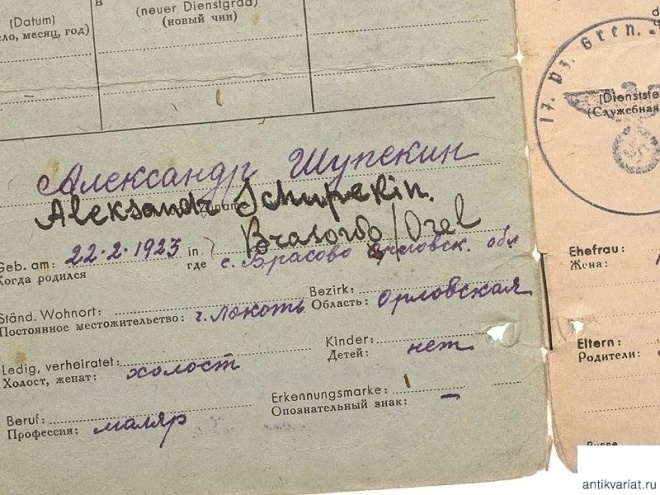 (Datum)
(neuer Dienstgrad)
(новый чин)
ло, месяц, год)
17. Pz. Gren.
(Dienstste
(Служебная
Александр Шупекин
Aleksandr Schupekin.
Brasowo/Orel
Geb. am: 22.2.1923 in
Когда родился где с. Брасово Орловск. обл
Ständ. Wohnort: Bezirk:
Постоянное местожительство: г. Локоть Область: Орловская
Ledig, verheiratet: Kinder:
Холост, женат: холост Детей: нет
Beruf: Erkennungsmarke:
Профессия: маляр Опознательный знак: –
Ehefrau:
Жена:
Eltern:
Родители:
antikvariat.ru